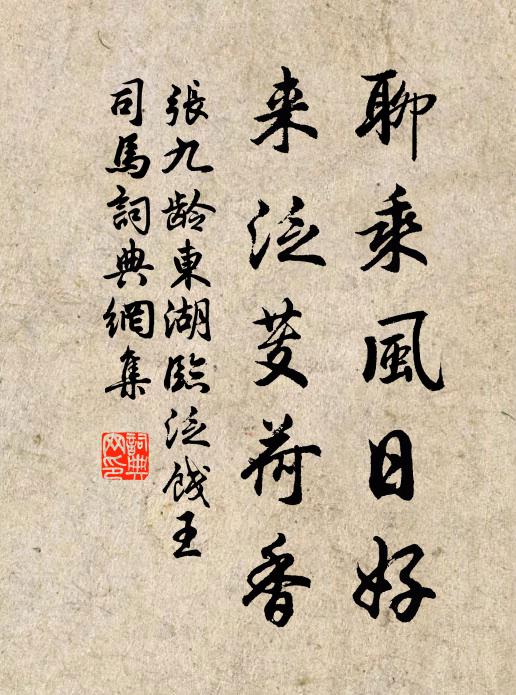 聊乘風日好
来泛芰荷香
張九龄東湖臨泛餞王
司馬詞典網集
詞典
网印